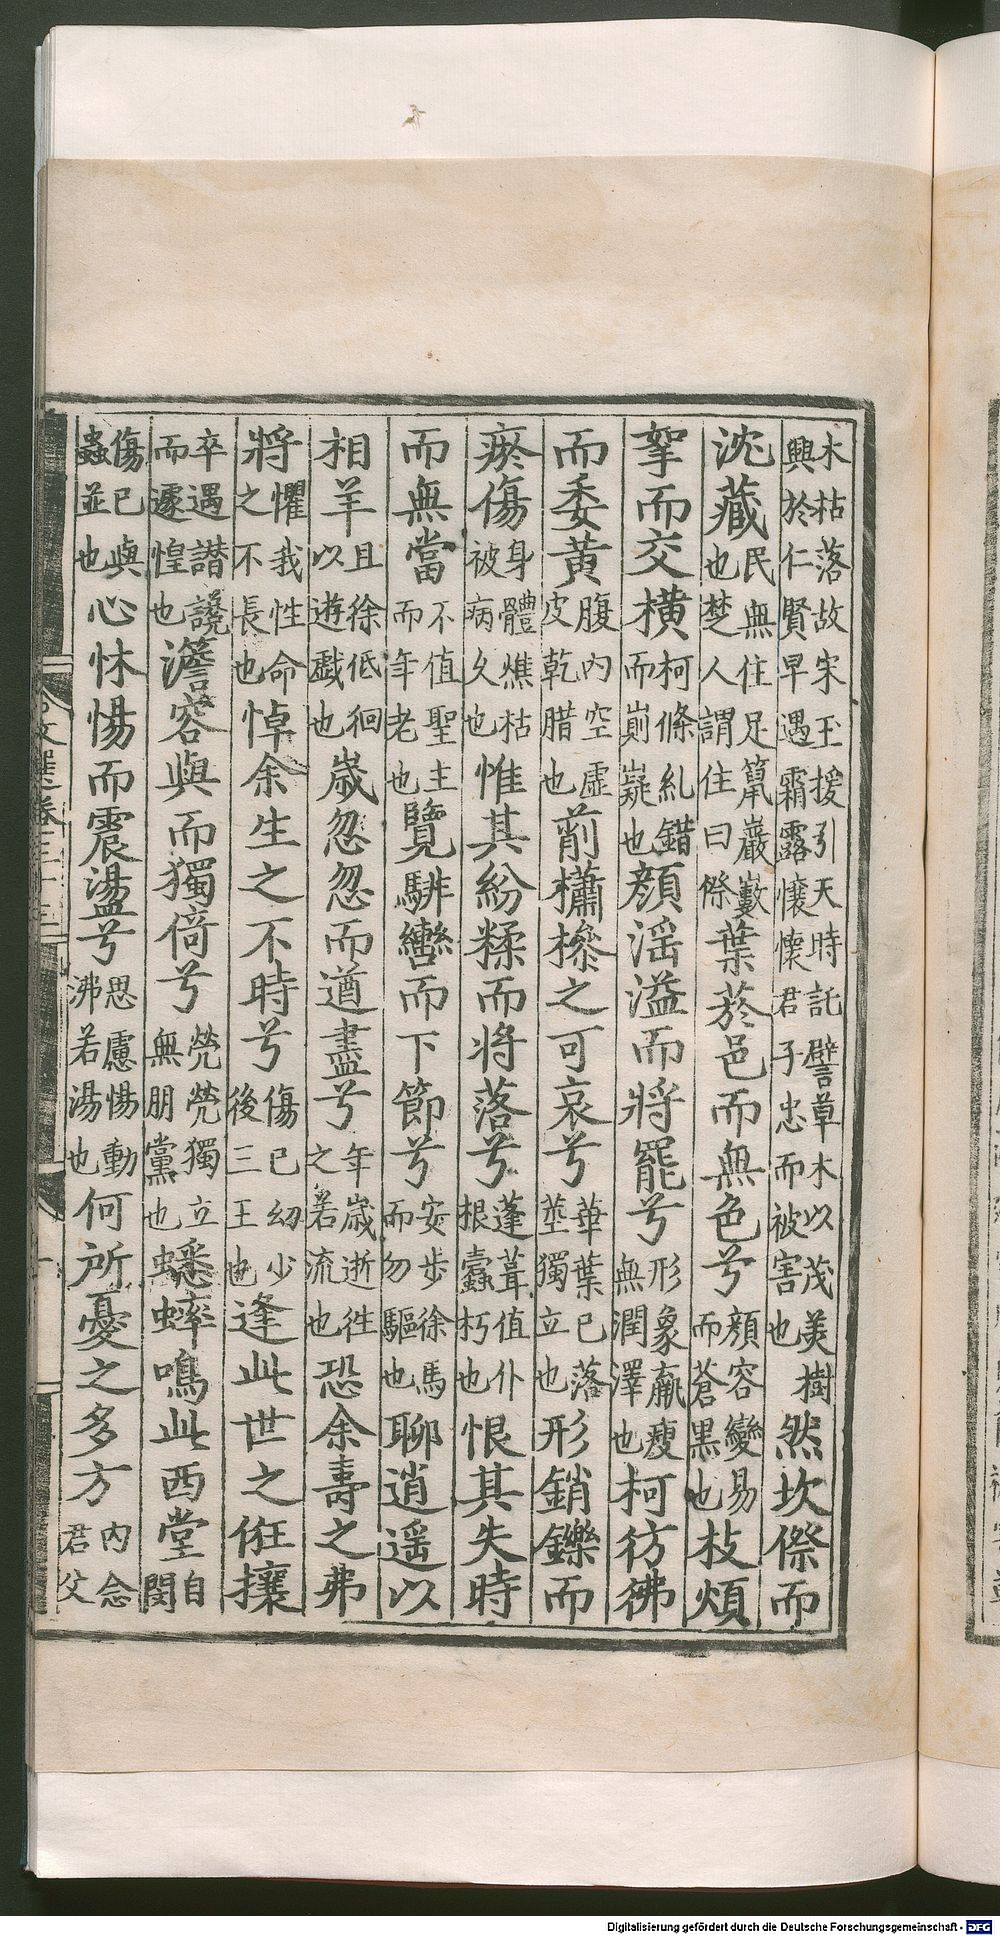 木枯落故宋玉援引天時託譬草木以茂美樹興於仁賢早遇霜露懷懷君子忠而被害也然坎傺而
沈藏民無住足竄巖藪也楚人謂住曰傺葉菸邑而無色兮顏容變易而蒼黑也枝煩
挐而交橫柯條糺錯而崱嶷也顔滛溢而將罷兮形象羸瘦無潤澤也柯彷彿
而委黄腹内空虛皮乾腊也萷櫹槮之可哀兮華葉已落莖獨立也形銷鑠而
瘀傷身體燋枯被病久也惟其紛糅而將落兮蓬茸值仆根蠹朽也恨其失時
而無當不值聖主而年老也覽騑轡而下節兮安步徐馬而勿驅也聊逍遥以
相羊且徐低徊以遊戲也歲忽忽而遒盡兮年歲逝徃之若流也恐余壽之弗
將懼我性命之不長也悼余生之不時兮傷已㓜少後三王也逢此世之俇攘
卒遇譖讒而遽惶也澹容與而獨倚兮煢煢獨立無朋黨也蟋蟀鳴此西堂自閔
傷已與蟲並也心怵惕而震盪兮思慮惕動沸若湯也何所憂之多方内念君父
文選卷三十三
Digitalisierung gefördert durch die Deutsche Forschungsgemeinschaft - DFG